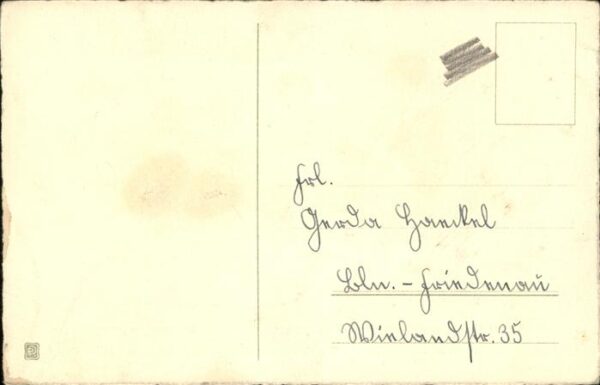 Frl.
Gerda Haeckel
Bln.-Friedenau
Wielandstr. 35